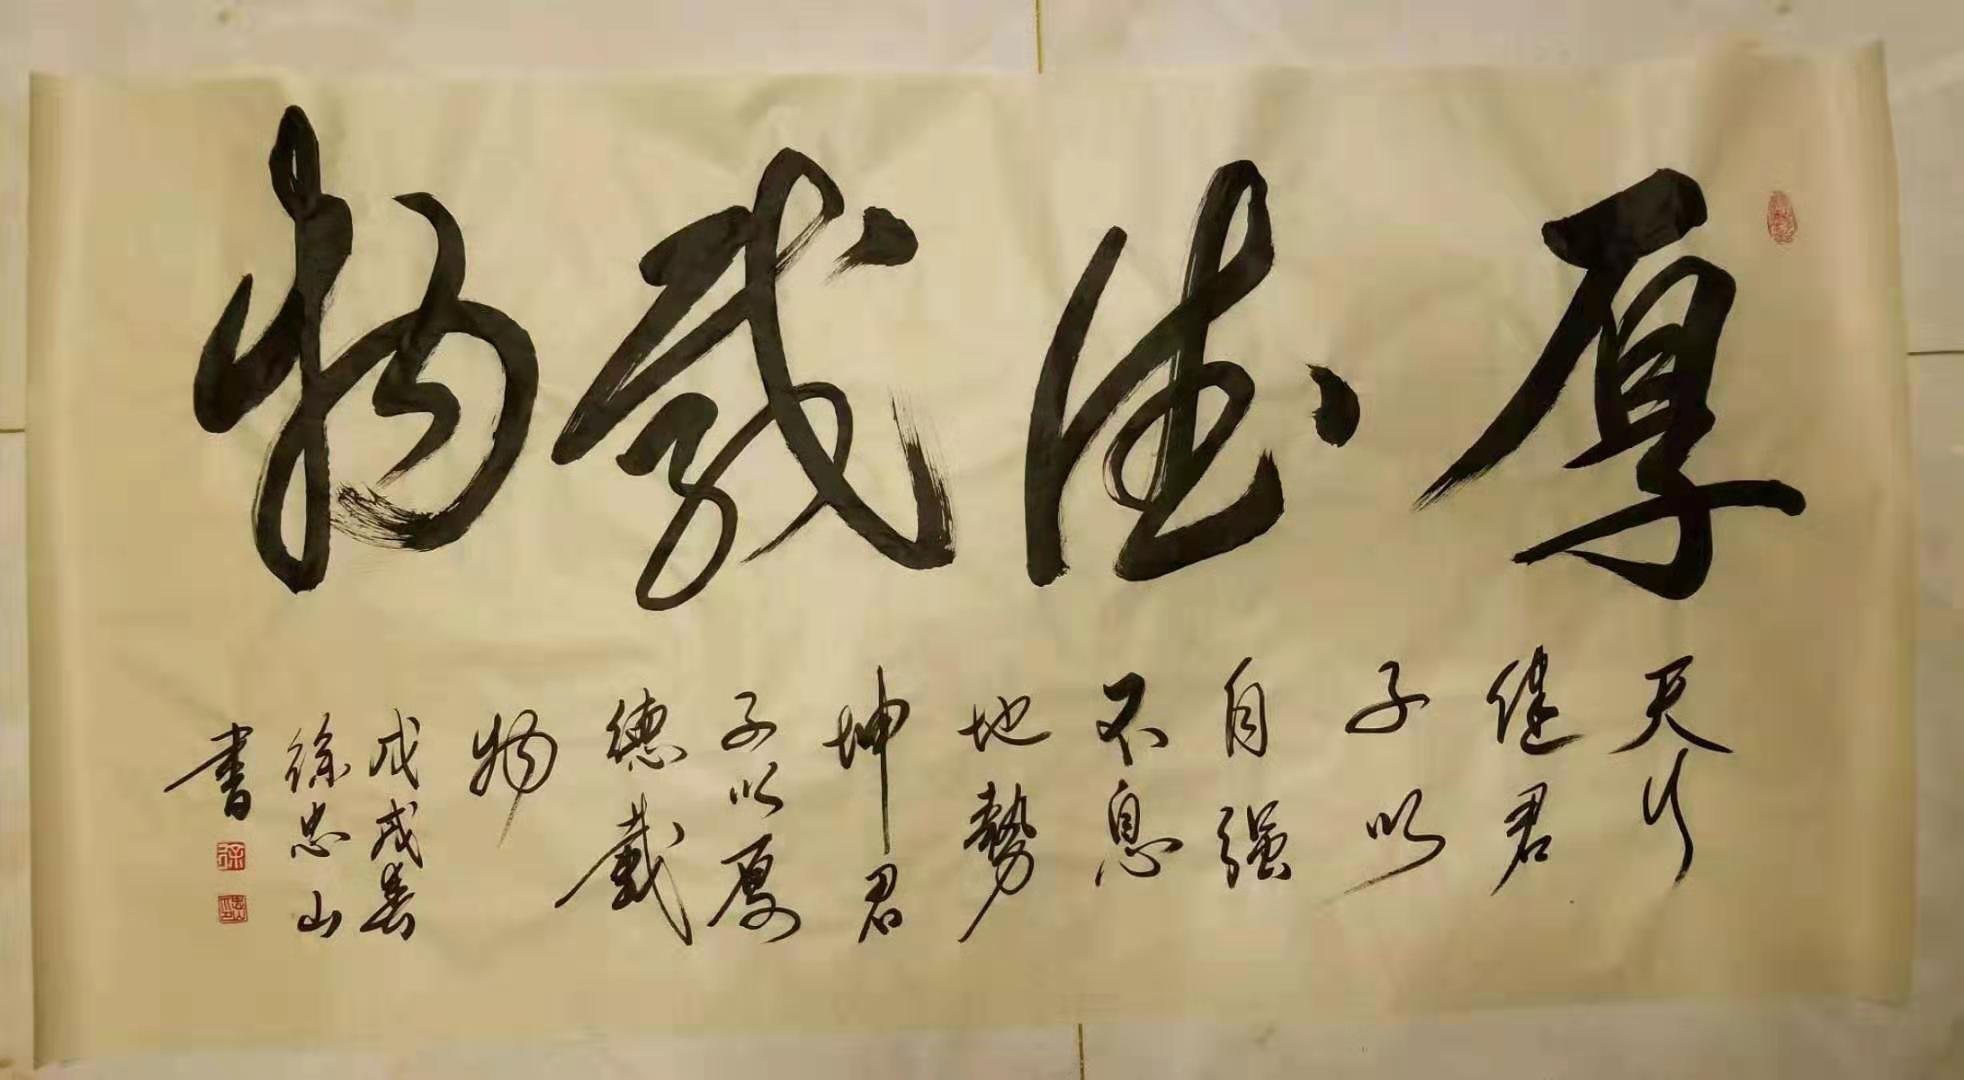 厚德载物
天行
健君
子以
自强
不息
地勢
坤君
子以厚
德載
物
戊戌春
徐忠山
書
徐
忠山